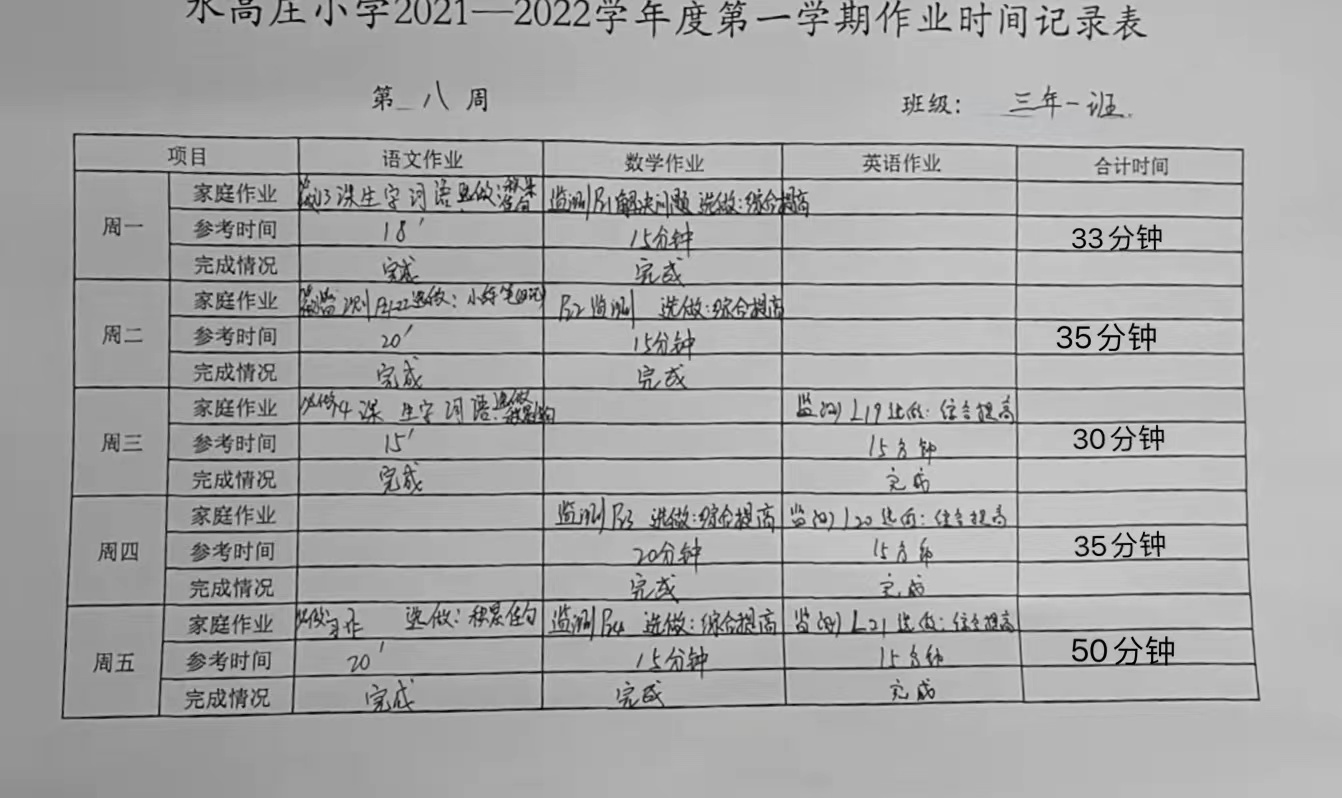 水高庄小学2021—2022学年度第一学期作业时间记录表
第 八 周 班级： 三年一班
项目 语文作业 数学作业 英语作业 合计时间
周一
家庭作业 13课生字词语选做： 监测P21解决问题 选做：综合提高
参考时间 18′ 15分钟 33分钟
完成情况 完成 完成
周二
家庭作业 监测P21-22选做：小练笔 P22监测 选做：综合提高
参考时间 20′ 15分钟 35分钟
完成情况 完成 完成
周三
家庭作业 必做4课 生字词语选做 监测L19选做：综合提高
参考时间 15′ 15分钟 30分钟
完成情况 完成 完成
周四
家庭作业 监测P23 选做：综合提高 监测L20选做：综合提高
参考时间 20分钟 15分钟 35分钟
完成情况 完成 完成
周五
家庭作业 必做习作 选做：积累佳句 监测P24 选做：综合提高 监测L21选做：综合提高
参考时间 20′ 15分钟 15分钟 50分钟
完成情况 完成 完成 完成